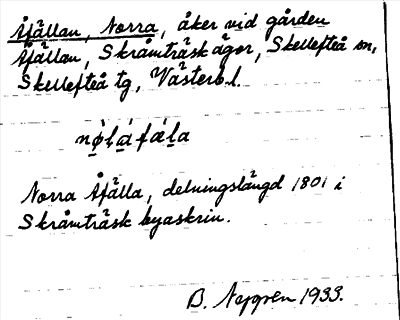 Åfällan, Norra, åker vid gården
Åfällan, Skråmträsk ägor, Skellefteå sn,
Skellefteå tg, Västerb.l.
nø̀la ́fæ̀la
Norra Åfälla, delningslängd 1801 i
Skråmträsk byaskrin.
B. 1933.